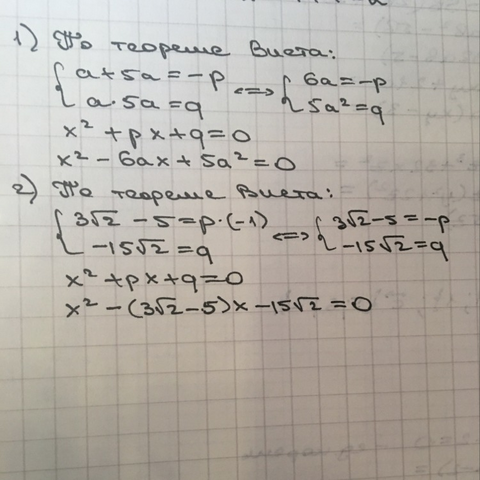 1) По теореме Виета:
{a + 5a = -p <=> {6a = -p
{a · 5a = q {5a² = q
x² + px + q = 0
x² - 6ax + 5a² = 0
2) По теореме Виета:
{3√2 - 5 = p · (-1) <=> {3√2 - 5 = -p
{-15√2 = q {-15√2 = q
x² + px + q = 0
x² - (3√2 - 5)x - 15√2 = 0